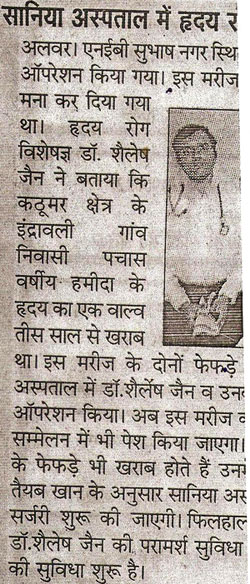 सानिया अस्पताल में हृदय र
अलवर। एनईबी सुभाष नगर स्थि
ऑपरेशन किया गया। इस मरीज
मना कर दिया गया
था। हृदय रोग
विशेषज्ञ डॉ. शैलेष
जैन ने बताया कि
कठूमर क्षेत्र के
इंद्रावली गांव
निवासी पचास
वर्षीय हमीदा के
हृदय का एक वाल्व
तीस साल से खराब
था। इस मरीज के दोनों फेफड़े
अस्पताल में डॉ.शैलेष जैन व उन
ऑपरेशन किया। अब इस मरीज व
सम्मेलन में भी पेश किया जाएगा।
के फेफड़े भी खराब होते हैं उन
तैयब खान के अनुसार सानिया अस
सर्जरी शुरू की जाएगी। फिलहाल
डॉ.शैलेष जैन की परामर्श सुविधा
की सुविधा शुरू है।